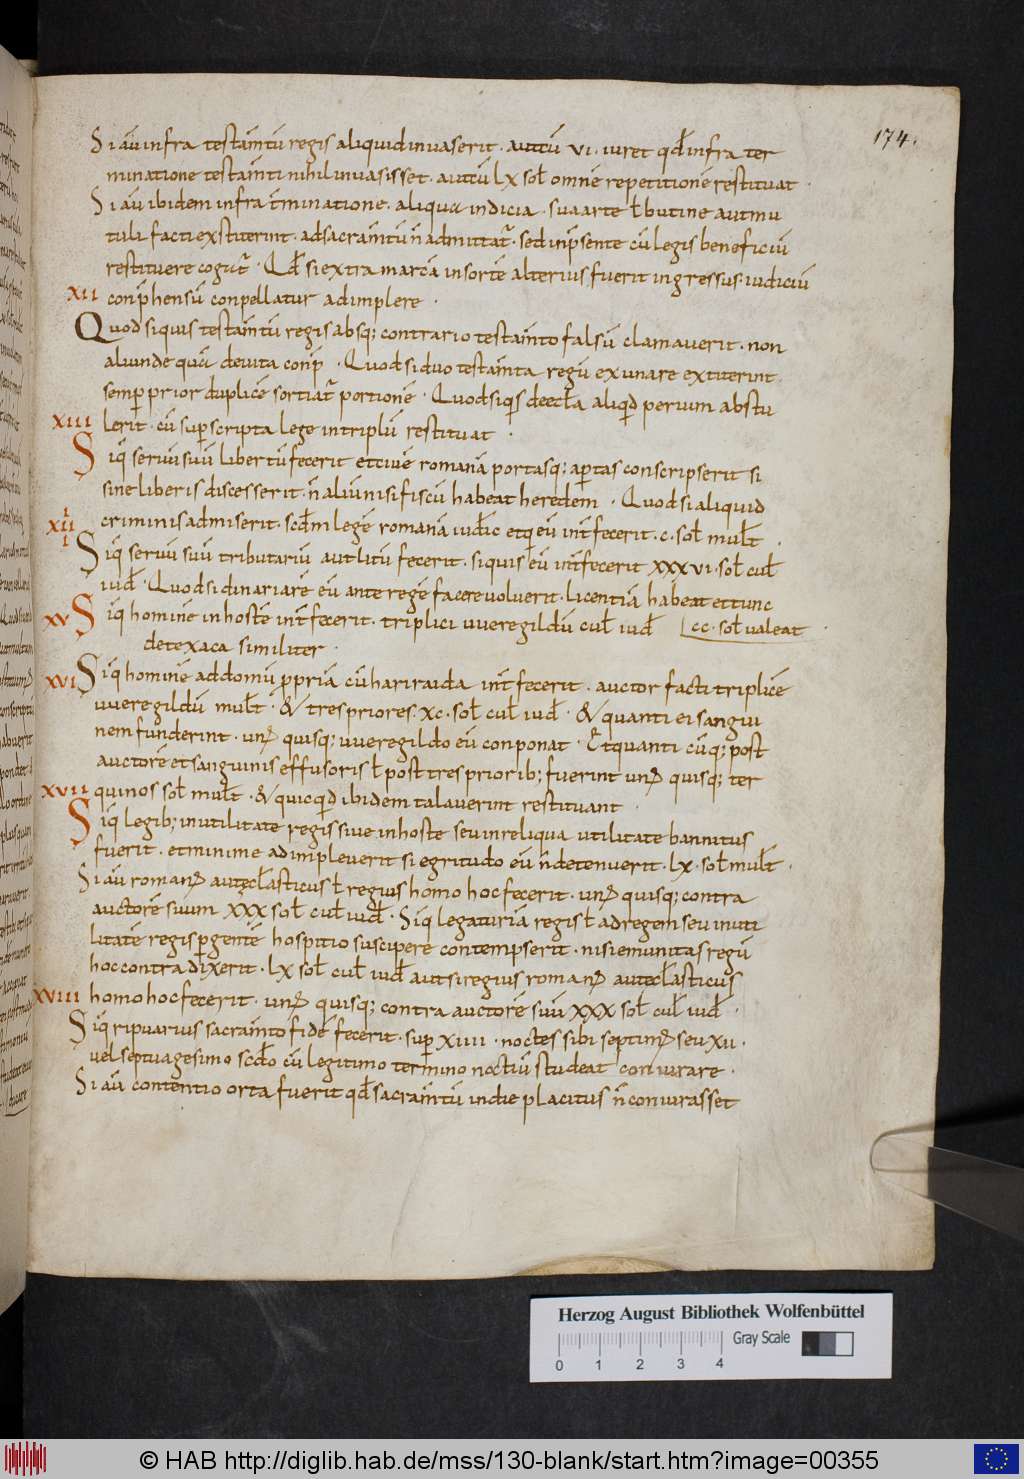 174.
Si aū infra testam̄tū regis aliquid inuaserit · aut cū VI · iuret qđ infra ter
minatione testam̄ti nihil inuasisset · aut cū LX sol omnē repetitionē restituat ·
Si aū ibidem infra t̄minatione · aliqua indicia · sua arte ł butine aut mu
tuli facti exstiterint · ad sacram̄tū n̄ admittat̄ · sed in p̄sente cū legis beneficiū
restituere cogat̄ · Qđ si extra marcā in sortē alterius fuerit ingressus · iudiciū
XII conp̄hensū conpellatur adimplere ·
Quod siquis testam̄tū regis absq; contrario testam̄to falsū clamauerit · non
aliunde quā de uita conp̄ · Quod si duo testam̄ta regū ex una re extiterint ·
semp̄ prior duplicē sortiat̄ portionē · Quod siq̄s de ecła aliq̄d per uim abstu
XIII lerit · cū sup̄scripta lege in triplū restituat ·
Siq̄ seruū suū libertū fecerit et ciuē romanā portasq; ap̄tas conscripserit si
sine liberis discesserit · n̄ aliū nisi fiscū habeat heredem · Quod si aliquid
XIIII criminis admiserit · scđm legē romanā iudic̄ et q̄ eū int̄fecerit · c · sol mult̄ ·
Siq̄ seruū suū tributariū aut litū fecerit · si quis eū int̄fecerit XXXVI · sol cul
iud̄ · Quod si dinariare eū ante regē facere uoluerit · licentiā habeat et tunc
XV Siq̄ hominē in hoste int̄fecerit · triplici uueregildū cul iud̄ cc · sol ualeat
de texaca similiter ·
XVI Siq̄ hominē ad domū p̄priā cū hariraida int̄fecerit · auctor facti triplicē
uueregildū mult̄ · & tres priores · xc · sol cul iud̄ · & quanti ei sangui
nem funderint · unꝰ quisq; uueregildo eū conponat · Et quanti cūq; post
auctorē et sanguinis effusoris ł post tres priorib; fuerint unꝰ quisq; ter
XVII quinos sol mult̄ · & quicq̄d ibidem talauerint restituant ·
Siq̄ legib; in utilitate regis siue in hoste seu in reliqua utilitate bannitus
fuerit · et minime adimpleuerit si egritudo eū n̄ detenuerit · LX · sol mult̄ ·
Si aū romanꝰ aut ecłasticus ł regius homo hoc fecerit · unꝰ quisq; contra
auctorē suum XXX sol cul iud̄ · Siq̄ legatariū regis ł ad regem seu in uti
litatē regis p̄gentē hospitio suscipere contempserit · nisi emunitas regū
hoc contradixerit · LX sol cul iud̄ aut si regius romanꝰ aut ecłasticus
XVIII homo hoc fecerit · unꝰ quisq; contra auctorē suū XXX sol cul iud̄ ·
Siq̄ ripuarius sacram̄to fidē fecerit · sup̄ XIIII · noctes sibi septimꝰ seu XII ·
uel septuagesimo scđo cū legitimo termino noctiū studeat coniurare ·
Si aū contentio orta fuerit qđ sacram̄tū in die placitus n̄ coniurasset
Herzog August Bibliothek Wolfenbüttel
Gray Scale
0 1 2 3 4
© HAB http://diglib.hab.de/mss/130-blank/start.htm?image=00355